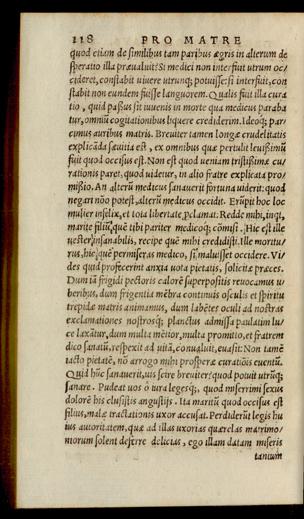 118 PRO MATRE
quod etiam de similibus tam paribus ægris in alterum de
speratio illa præualuit? Si medici non interfuit utrum oc⸗
cideret, constabit uiuere utrunq; potuisse: si interfuit, con
stabit non eundem fuisse languorem. Qualis fuit illa cura
tio, quid passus sit iuuenis in morte qua medicus paraba
tur, omniũ cogitationibus liquere crediderim. Ideoq; par⸗
cimus auribus matris. Breuiter tamen longæ crudelitatis
explicãda sæuitia est, ex omnibus quæ pertulit leuissimũ
fuit quod occisus est. Non est quod ueniam tristissimæ cu⸗
rationis paret, quod uidetur, in alio fratre explicata pro⸗
missio. An alterũ medicus sanauerit fortuna uiderit: quod
negari nõo potest, alterũ medicus occidit. Erũpit hoc loc
mulier infelix, et tota libertate ꝓclamat. Redde mihi, inqt,
marite filiũ, quẽ tibi pariter medicoq; cõmisi. Hic est ille
uester, insanabilis, recipe quẽ mihi credidisti. Ille moritu⸗
rus, hic, quẽ permiseras medico, si maluisset occidere. Vi⸗
des quid profecerint anxia uota pietatis, solicitæ præces.
Dum iã frigidi pectoris calorẽ superpositis reuocamus u
beribus, dum frigentia mẽbra continuis osculis et spiritu
trepidæ matris animamus, dum labẽtes oculi ad nostras
exclamationes nostrosq; planctus admissa paulatim lu⸗
ce laxãtur, dum multa mẽtior, multa promitio, et fratrem
dico sanatũ, respexit ad uitã, conualuit, euasit: Non tamẽ
tacto pietatẽ, nõ arrogo mihi prosperæ curatiõis euentũ.
Quid hũc sanauerit, uis scire breuiter? quod potuit utrũq;
sanare. Pudeat uos ô iura legesq;, quod miserrimi sexus
dolorẽ his clusistis angustijs. Ita maritũ quod occisus est
filius, malæ tractationis uxor accusat. Perdiderũt legis hu
ius autoritatem, quæ ad illas uxorias querelas matrimo⸗
niorum solent deferre delicias, ego illam datam miseris
tantum